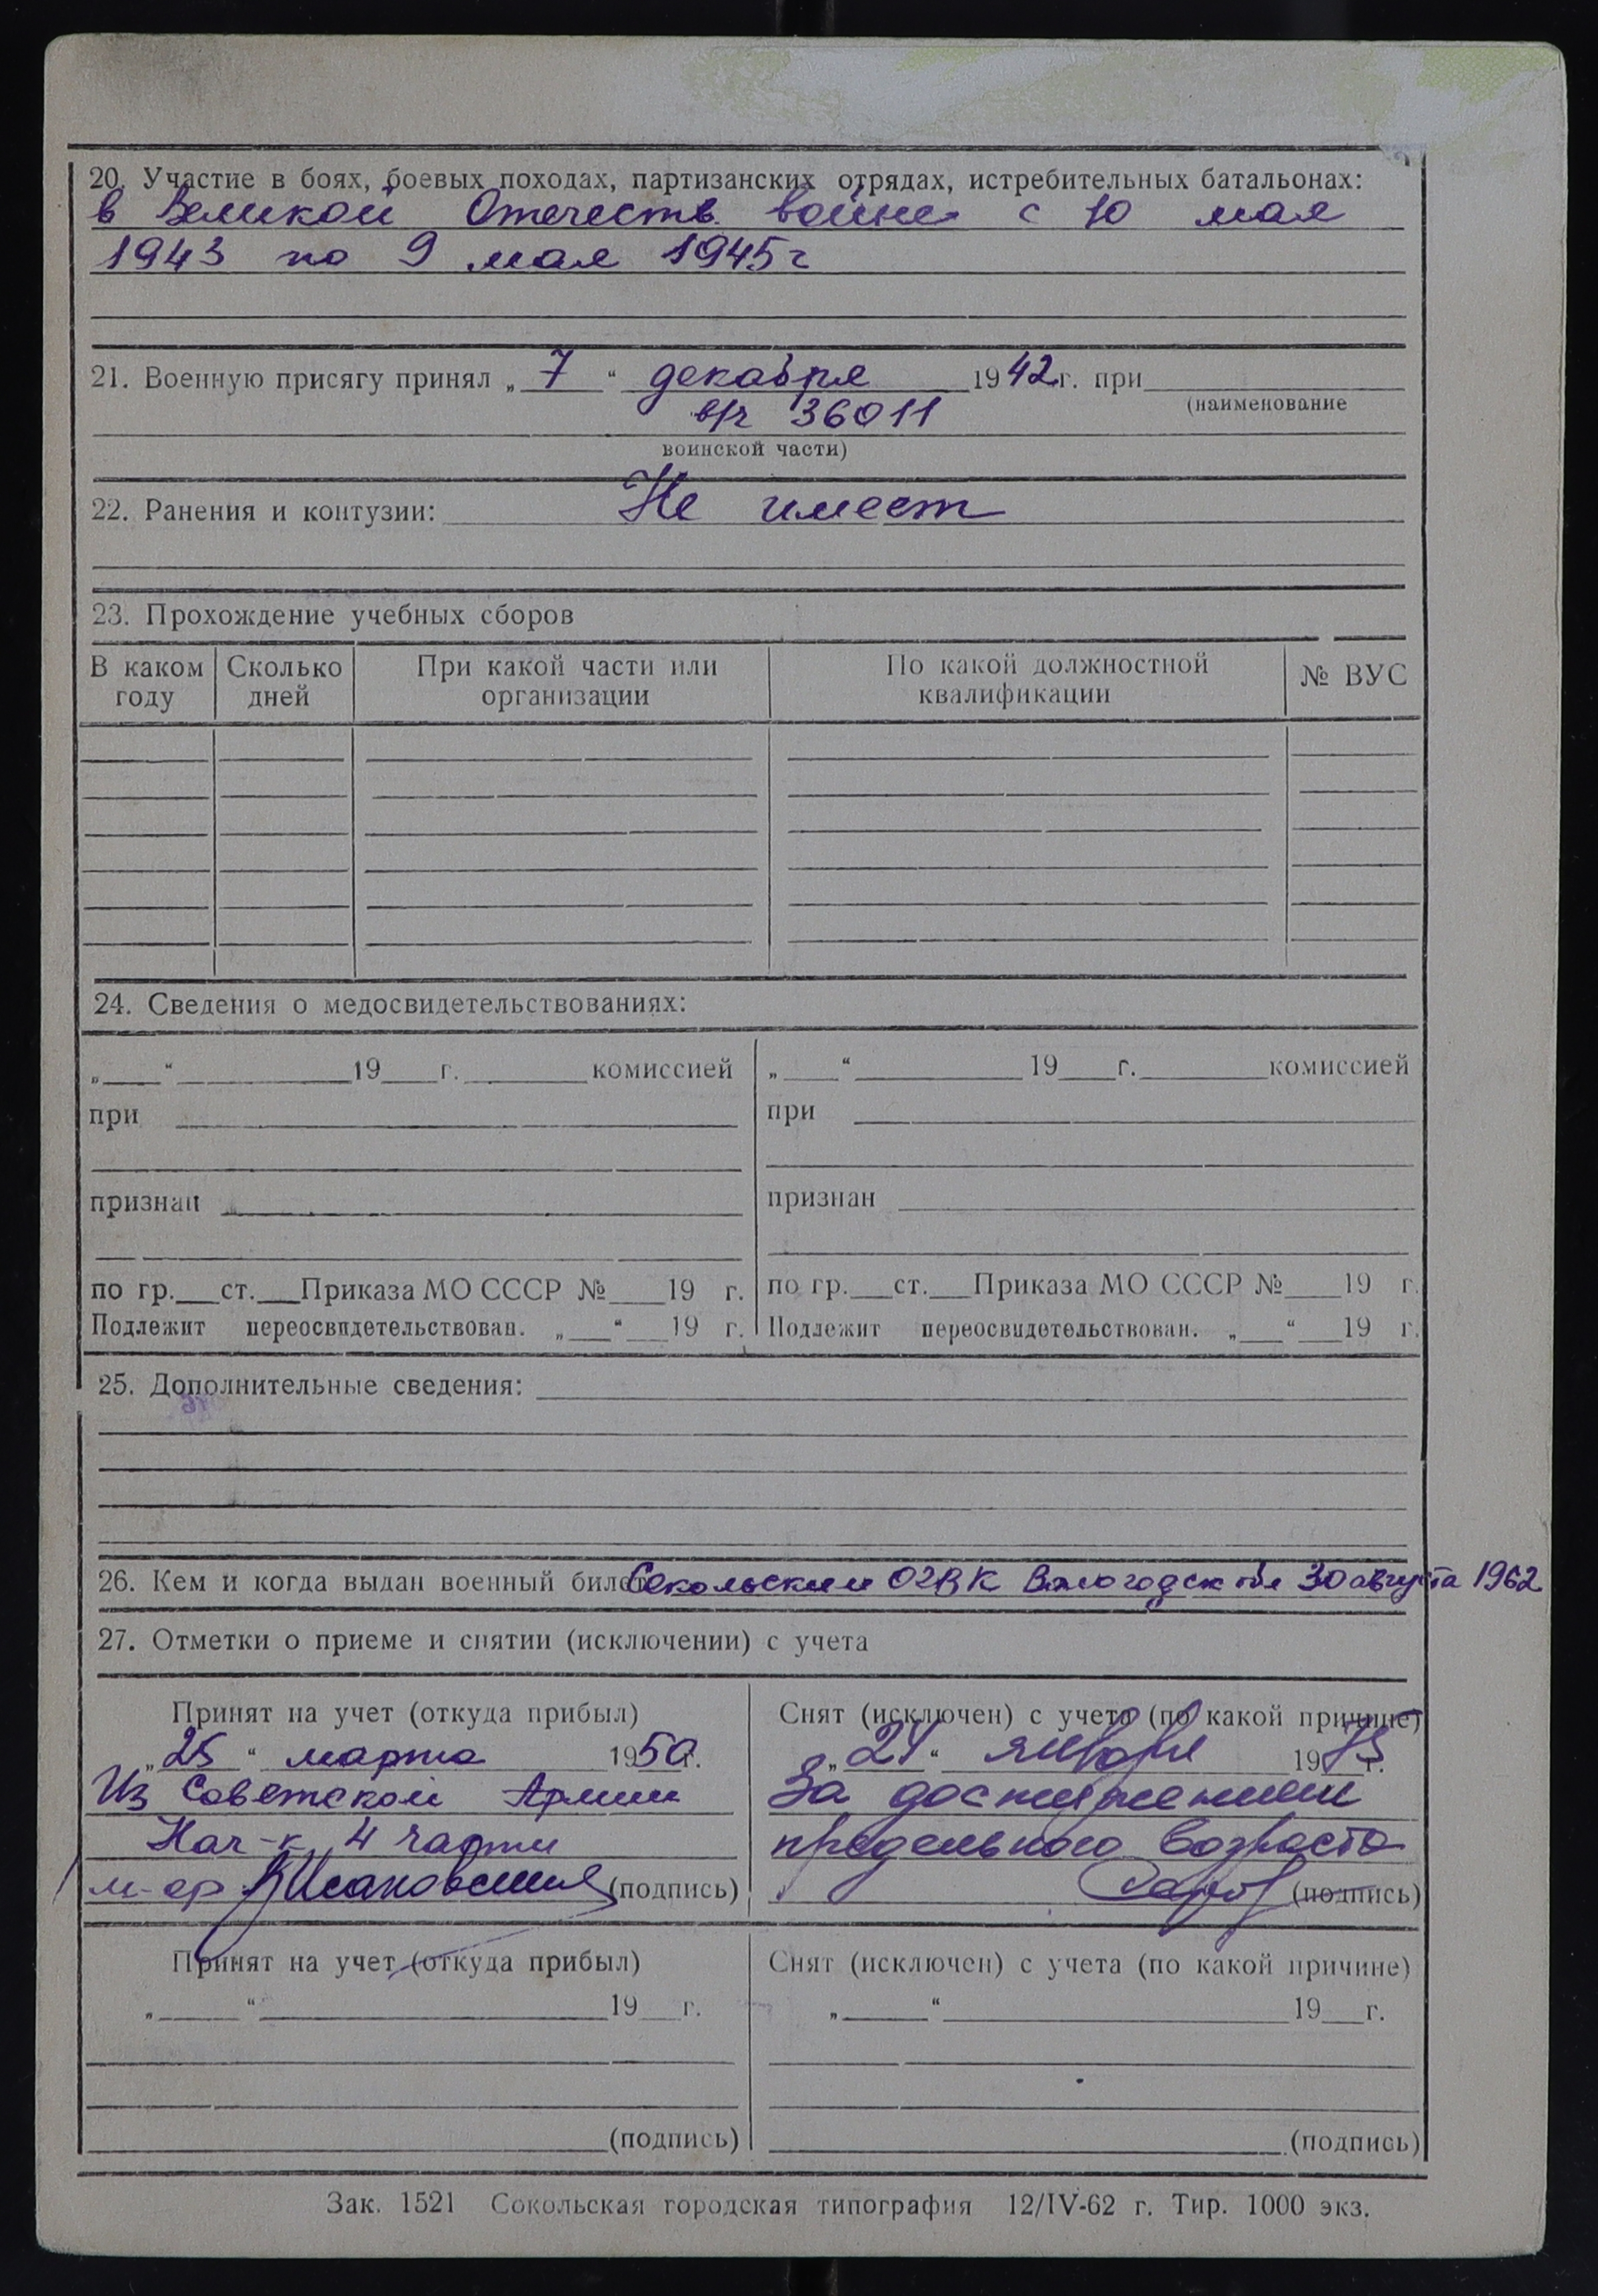 20. Участие в боях, боевых походах, партизанских отрядах, истребительных батальонах:
в Великой Отечеств. войне с 10 мая
1943 по 9 мая 1945г
21. Военную присягу принял „ 7 “ декабря 1942г. при
(наименование
в/ч 36011
воинской части)
22. Ранения и контузии: Не имеет
23. Прохождение учебных сборов
В каком году
Сколько дней
При какой части или организации
По какой должностной квалификации
№ ВУС
24. Сведения о медосвидетельствованиях:
„ “ 19 г. комиссией
при
признан
по гр. ст. Приказа МО СССР № 19 г.
Подлежит переосвидетельствован. „ “ 19 г.
„ “ 19 г. комиссией
при
признан
по гр. ст. Приказа МО СССР № 19 г.
Подлежит переосвидетельствован. „ “ 19 г.
25. Дополнительные сведения:
26. Кем и когда выдан военный билет Сокольским ОГВК Вологодск обл 30 августа 1962
27. Отметки о приеме и снятии (исключении) с учета
Принят на учет (откуда прибыл)
„ 25 “ марта 1950г.
Из Советской Армии
Нач-к 4 части
м-ор (подпись)
Снят (исключен) с учета (по какой причине)
„ 24 “ января 1975 г.
За достижением
предельного возраста
(подпись)
Принят на учет (откуда прибыл)
„ “ 19 г.
(подпись)
Снят (исключен) с учета (по какой причине)
„ “ 19 г.
(подпись)
Зак. 1521 Сокольская городская типография 12/IV-62 г. Тир. 1000 экз.